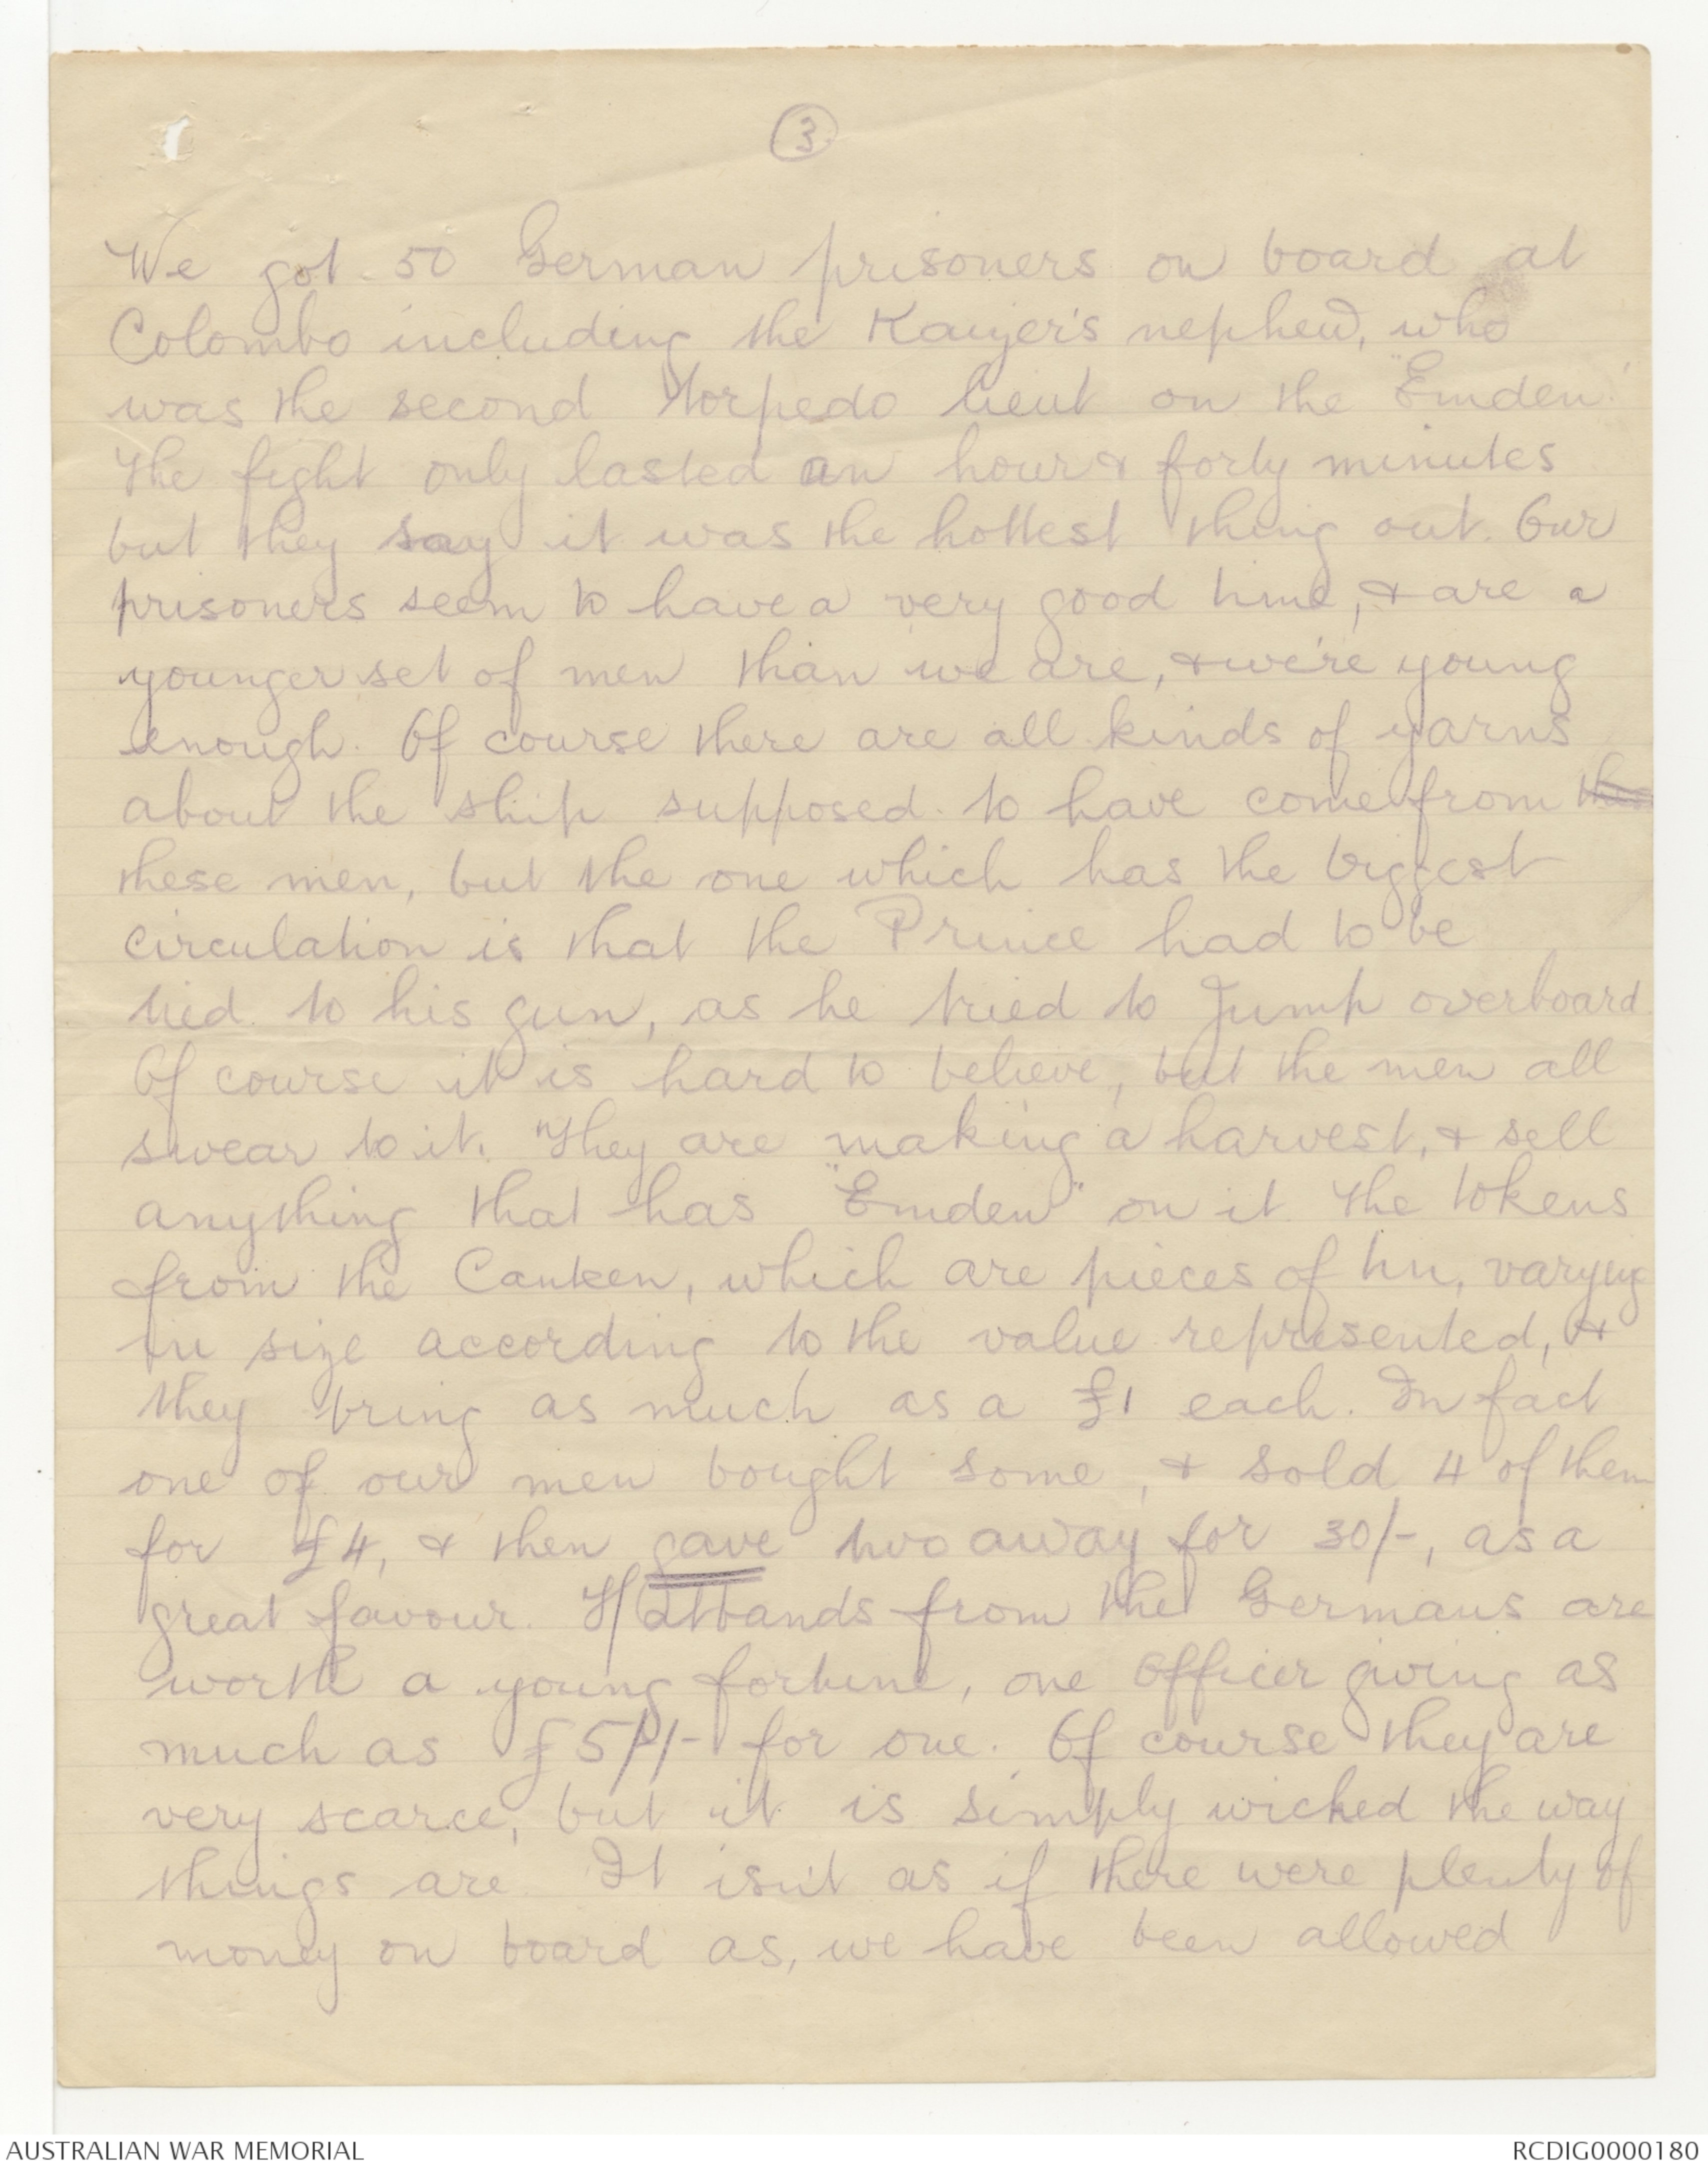 3
We got 50 German prisoners on board at
Colombo including the Kaiyer's nephew, who
was the second torpedo lieut on the "Emden".
The fight only lasted an hour & forty minutes
but they say it was the hottest thing out. Our
prisoners seem to have a very good time, & are a
younger set of men than we are, & we're young
enough. Of course there are all kinds of yarns
about the ship supposed to have come from
these men, but the one which has the biggest
circulation is that the Prince had to be
tied to his gun, as he tried to Jump overboard
Of course it is hard to believe, but the men all
swear to it. They are making a harvest, & sell
anything that has "Emden" on it The tokens
from the Canteen, which are pieces of tin, varying
in size according to the value represented, &
they bring as much as a £1 each. In fact
one of our men bought some, & sold 4 of them
for £4, & then gave two away for 30/-, as a
great favour. Hatbands from the Germans are
worth a young fortune, one officer giving as
much as £5/-/- for one. Of course they are
very scarce, but it is simply wicked the way
things are. It isn't as if there were plenty of
money on board as, we have been allowed
AUSTRALIAN WAR MEMORIAL
RCDIG0000180